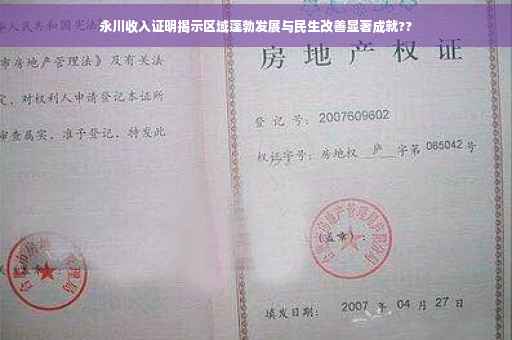 永川收入证明揭示区域蓬勃发展与民生改善显著成就??
华人民共和国宪法
市房地产管理法》及有关法
定，对权利人申请登记本证所
审查属实，准予登记，特发此
房地产权证
登记号：2007609602
权证字号：房地权 庐 字第 065042 号
(盖章)：
填发日期：2007 年 04 月 27 日